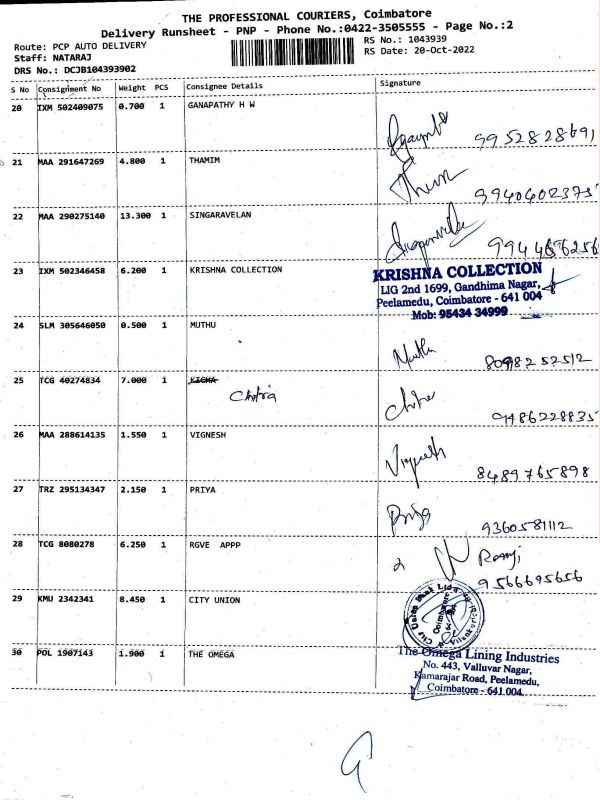 THE PROFESSIONAL COURIERS, Coimbatore
Delivery Runsheet - PNP - Phone No.:0422-3505555 - Page No.:2
Route: PCP AUTO DELIVERY RS No.: 1043939
Staff: NATARAJ RS Date: 20-Oct-2022
DRS No.: DCJB104393902
S No Consignment No Weight PCS Consignee Details Signature
20 IXM 502409075 0.700 1 GANAPATHY H W
9952828691
21 MAA 291647269 4.800 1 THAMIM
9940602375
22 MAA 290275140 13.300 1 SINGARAVELAN
23 IXM 502346458 6.200 1 KRISHNA COLLECTION
KRISHNA COLLECTION
LIG 2nd 1699, Gandhima Nagar,
Peelamedu, Coimbatore - 641 004
Mob: 95434 34999
24 SLM 305646050 0.500 1 MUTHU
Muthu 8098252512
25 TCG 40274834 7.000 1
Chitra
Chitra 9486228835
26 MAA 288614135 1.550 1 VIGNESH
Vignesh 8489765898
27 TRZ 295134347 2.150 1 PRIYA
Priya 9360581112
28 TCG 8080278 6.250 1 RGVE APPP
9566695656
29 KMU 2342341 8.450 1 CITY UNION
City Union Bank Ltd
Coimbatore
30 POL 1907143 1.900 1 THE OMEGA
The Omega Lining Industries
No. 443, Valluvar Nagar,
Kamarajar Road, Peelamedu,
Coimbatore - 641 004.